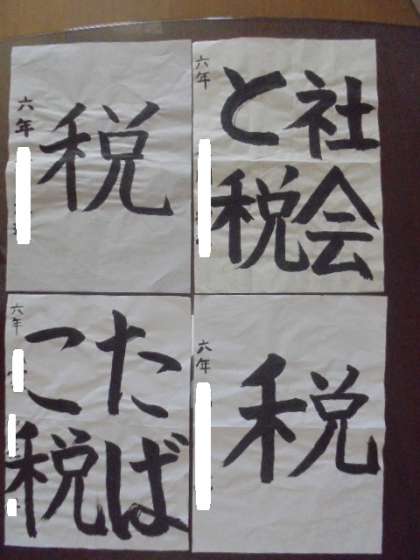 税
六年
社会
と税
六年
たば
こ税
六年
税
六年